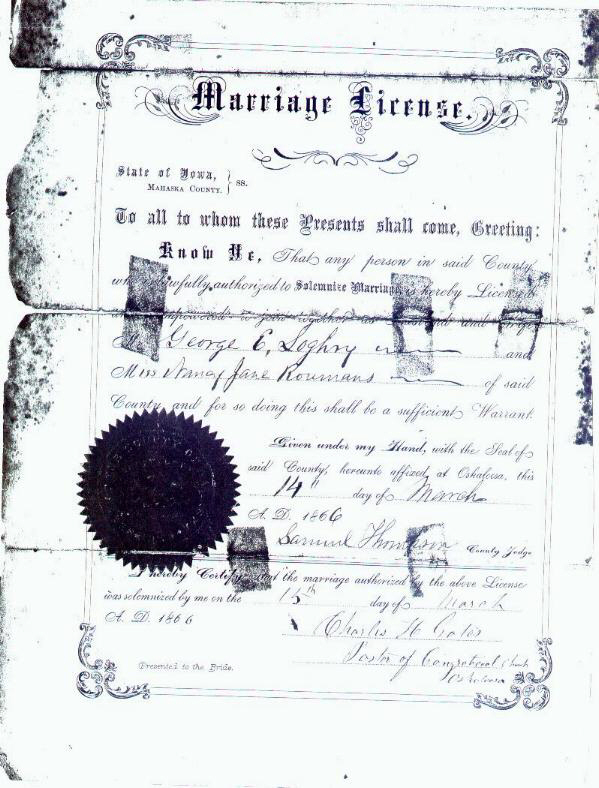 Marriage License.
State of Iowa,
MAHASKA COUNTY. } ss.
To all to whom these Presents shall come, Greeting:
Know Ye, That any person in said County
lawfully authorized to Solemnize Marriage is hereby Licensed
empowered to join together as and
George E, Loghry and
Miss Nancy Jane Roumans of said
County and for so doing this shall be a sufficient Warrant.
Given under my Hand, with the Seal of
said County, hereunto affixed, at Oskaloosa, this
14" day of March
A. D. 1866
Samuel Thompson County Judge
I hereby Certify that the marriage authorized by the above License
was solemnized by me on the 15th day of March
A. D. 1866
Charles H Gates
Pastor of Church
Oskaloosa
Presented to the Bride.